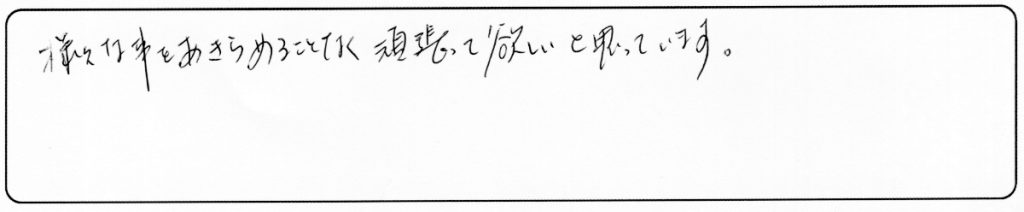 様々な事をあきらめることなく頑張って欲しいと思っています。